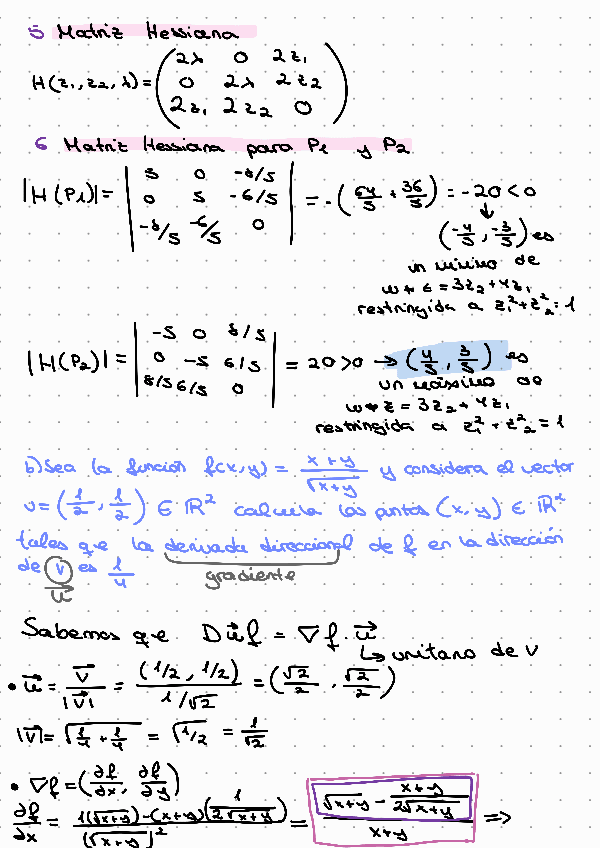 5 Matriz Hessiana
H(z₁, z₂, λ) = ( 2λ 0 2z₁
0 2λ 2z₂
2z₁ 2z₂ 0 )
6 Matriz Hessiana para P₁ y P₂
|H(P₁)| = | 5 0 -8/5
0 5 -6/5
-8/5 -6/5 0 | = -(64/5 + 36/5) = -20 < 0
↓
(-4/5, -3/5) es
un mínimo de
w * z = 3z₂ + 4z₁
restringida a z₁² + z₂² = 1
|H(P₂)| = | -5 0 8/5
0 -5 6/5
8/5 6/5 0 | = 20 > 0 → (4/5, 3/5) es
un máximo de
w * z = 3z₂ + 4z₁
restringida a z₁² + z₂² = 1
b) Sea la función f(x,y) = (x+y)/√(x+y) y considera el vector
v = (1/2, 1/2) ∈ ℝ² calcula los puntos (x, y) ∈ ℝ²
tales que la derivada direccional de f en la dirección
de v es 1/4
gradiente
u⃗
Sabemos que Du⃗f = ∇f · u⃗
↳ unitario de v
• u⃗ = v⃗/|v⃗| = (1/2, 1/2)/(1/√2) = (√2/2, √2/2)
|v⃗| = √(1/4 + 1/4) = √(1/2) = 1/√2
• ∇f = (∂f/∂x, ∂f/∂y)
∂f/∂x = (1(√(x+y)) - (x+y)(1/(2√(x+y))))/(√(x+y))² = (√(x+y) - (x+y)/(2√(x+y)))/(x+y) ⇒